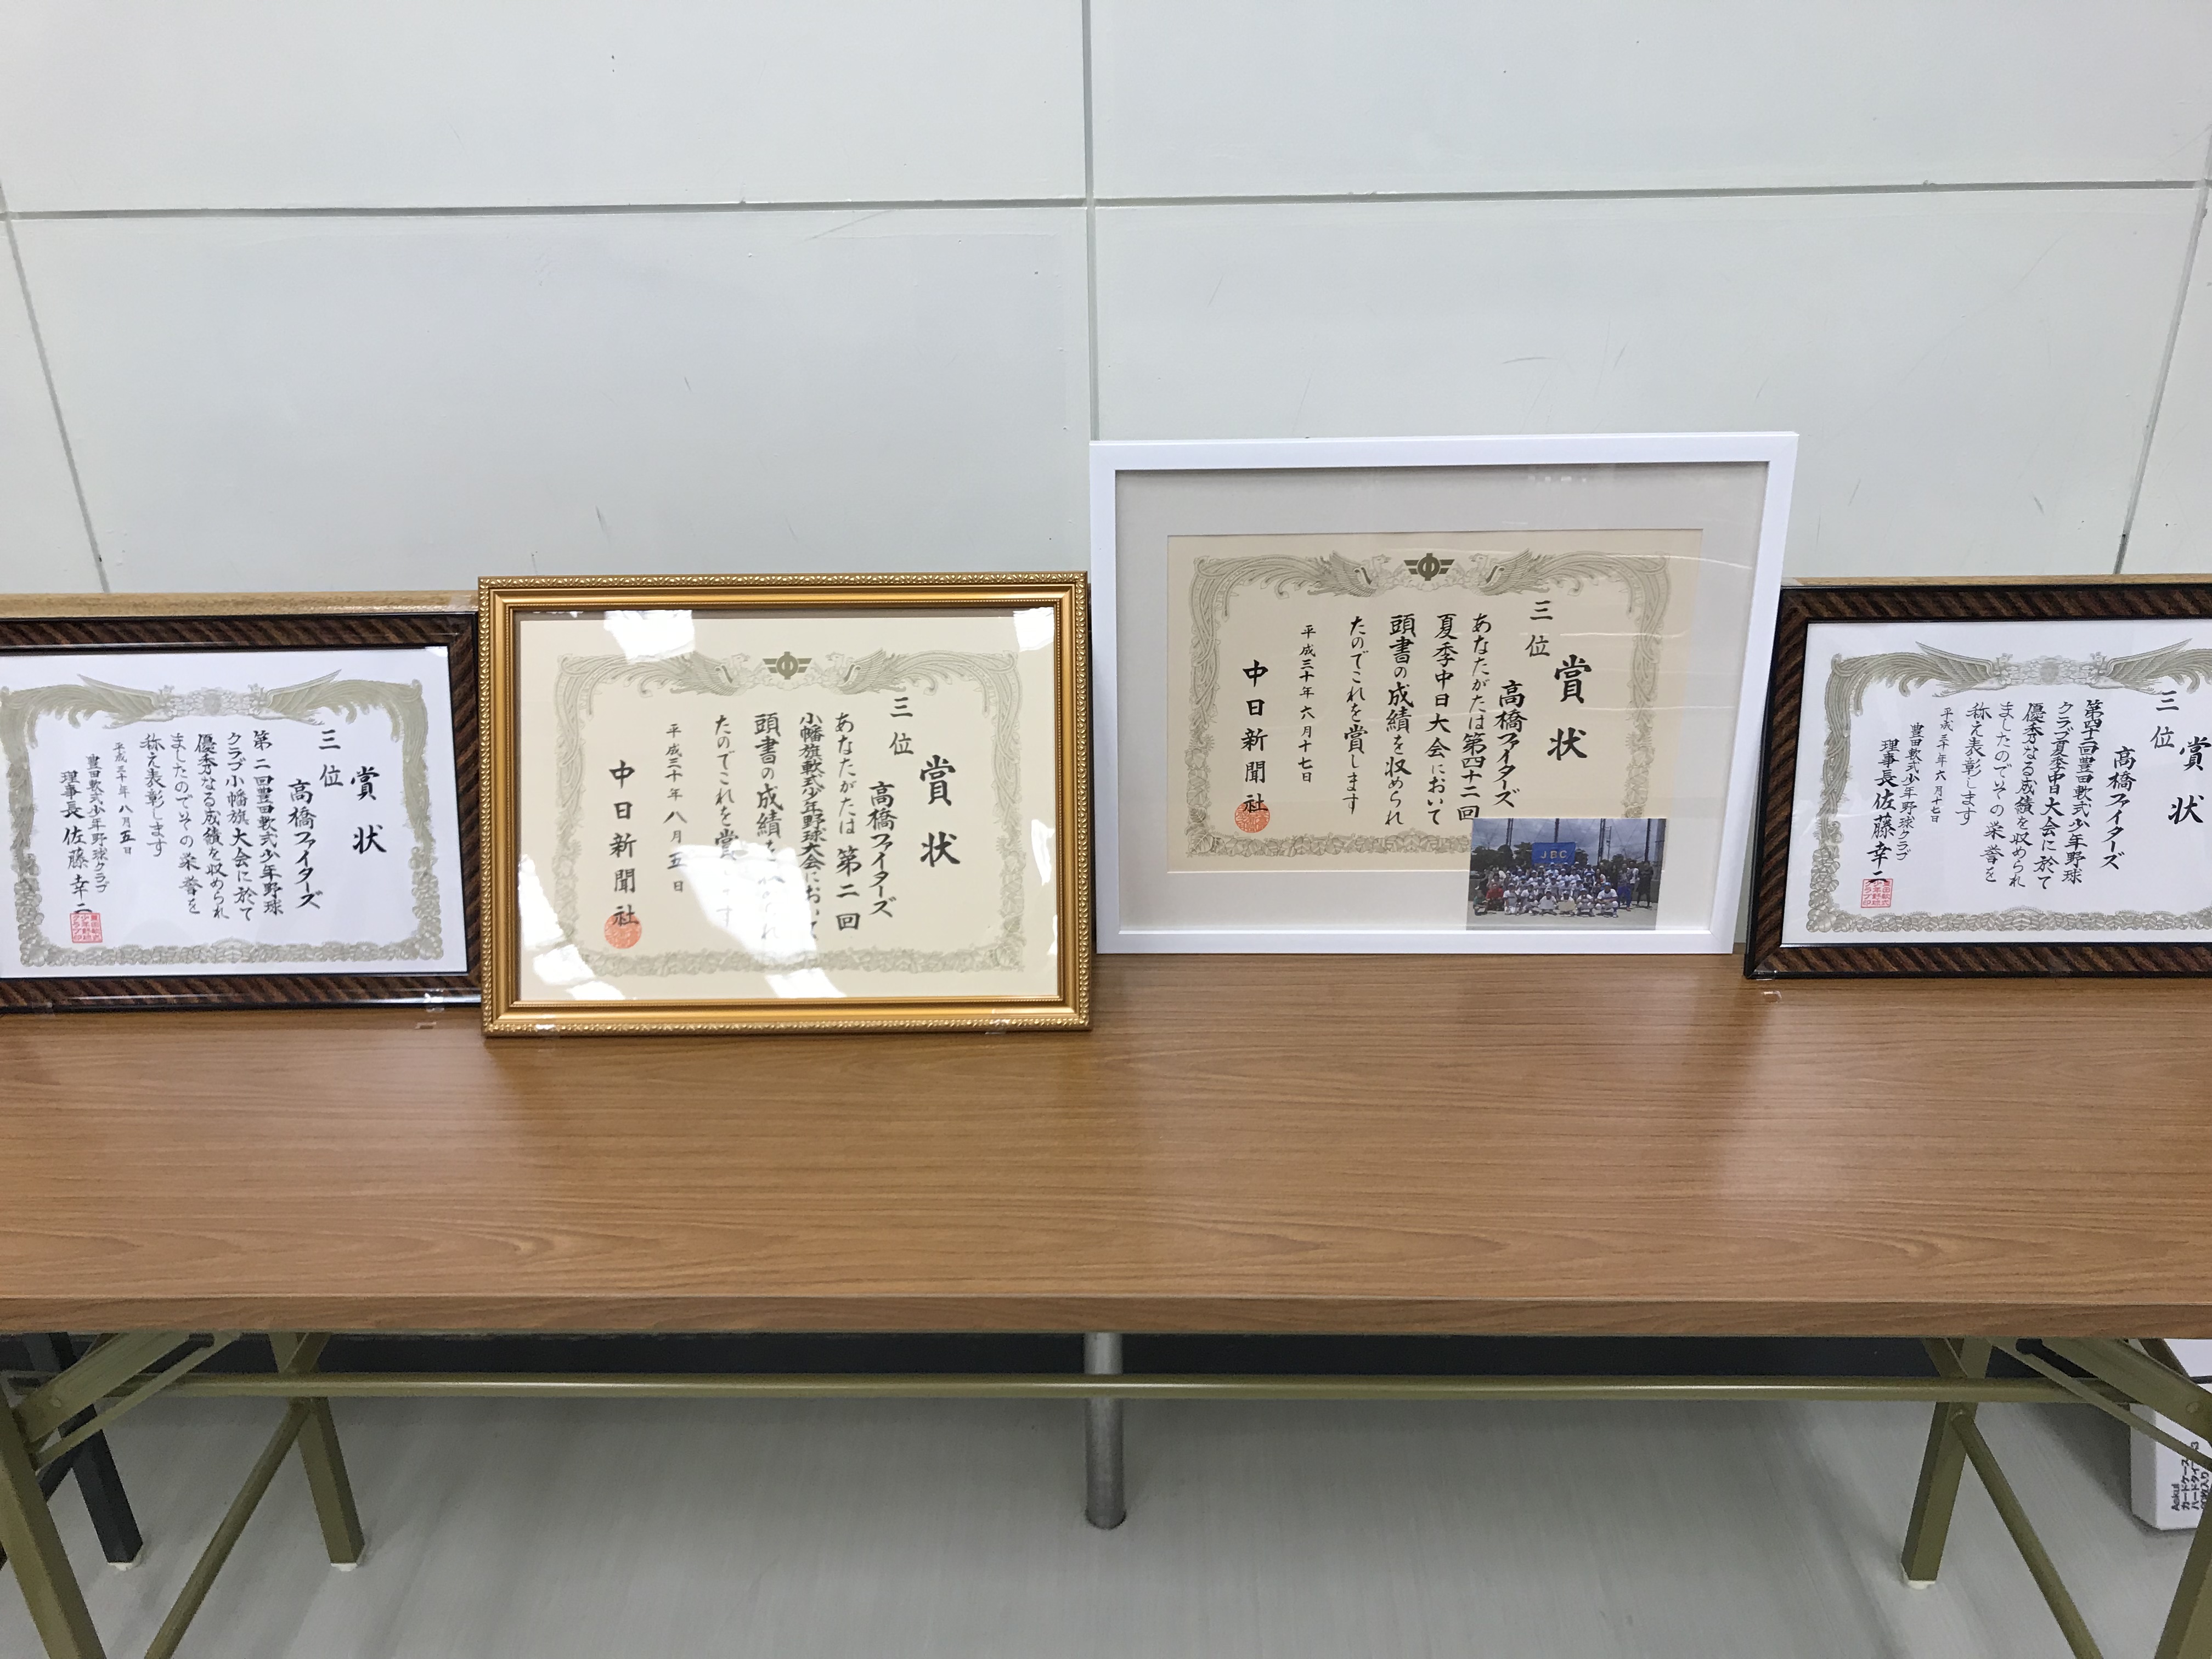 賞状
三位
高橋ファイターズ
第二回豊田軟式少年野球
クラブ小幡旗大会に於て
優秀なる成績を収められ
ましたのでその栄誉を
称え表彰します
平成三十年八月五日
豊田軟式少年野球クラブ
理事長佐藤幸二
賞状
三位
高橋ファイターズ
あなたがたは第二回
小幡旗軟式少年野球大会において
頭書の成績を収められ
たのでこれを賞します
平成三十年八月五日
中日新聞社
賞状
三位
高橋ファイターズ
あなたがたは第四十二回
夏季中日大会において
頭書の成績を収められ
たのでこれを賞します
平成三十年六月十七日
中日新聞社
JBC
賞状
三位
高橋ファイターズ
第四十二回豊田軟式少年野球
クラブ夏季中日大会に於て
優秀なる成績を収められ
ましたのでその栄誉を
称え表彰します
平成三十年六月十七日
豊田軟式少年野球クラブ
理事長佐藤幸二
Askul
カードケース